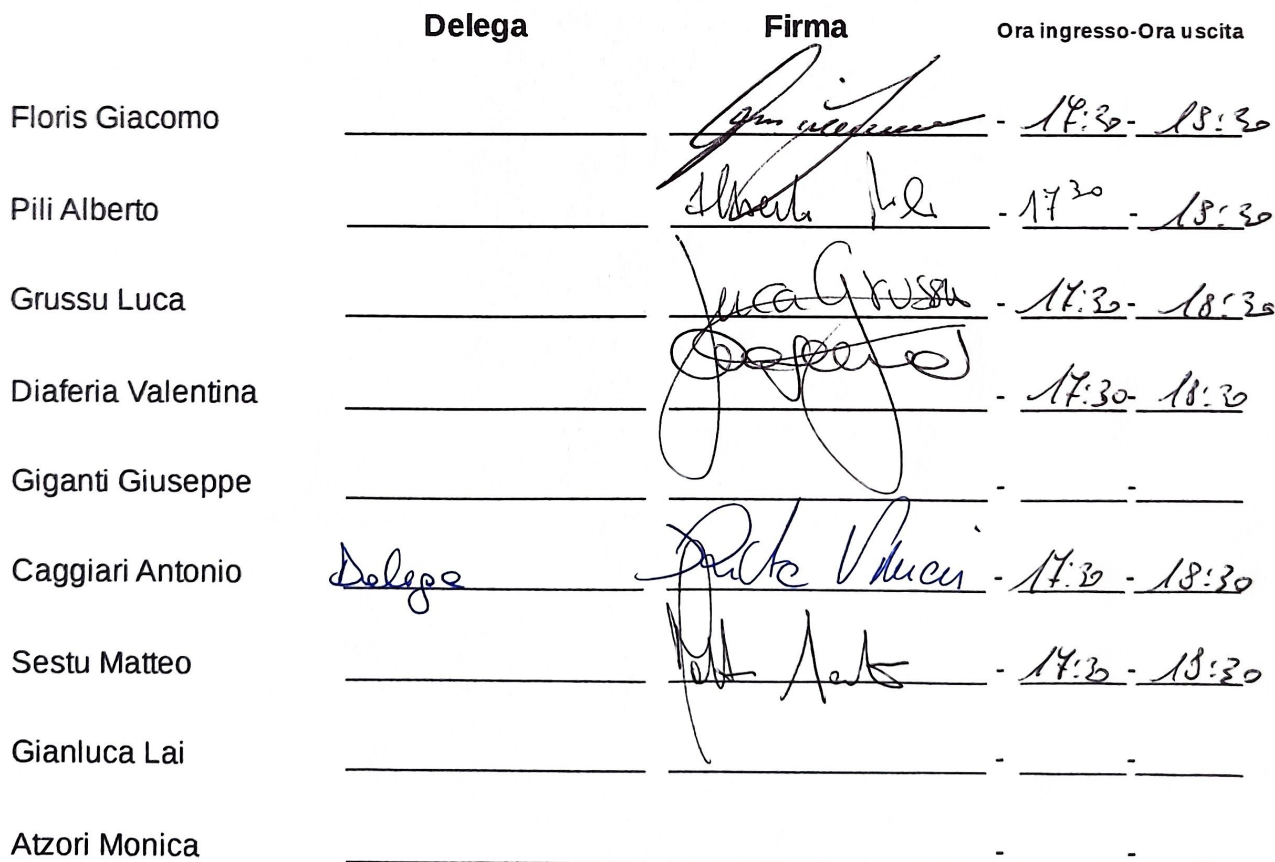 Delega Firma Ora ingresso-Ora uscita
Floris Giacomo - 17:30- 18:30
Pili Alberto Alberto Pili - 17 30 - 18:30
Grussu Luca Luca Grussu - 17:30- 18:30
Diaferia Valentina - 17:30- 18:30
Giganti Giuseppe - -
Caggiari Antonio Delega - 17:30 - 18:30
Sestu Matteo - 17:30 - 18:30
Gianluca Lai - -
Atzori Monica - -